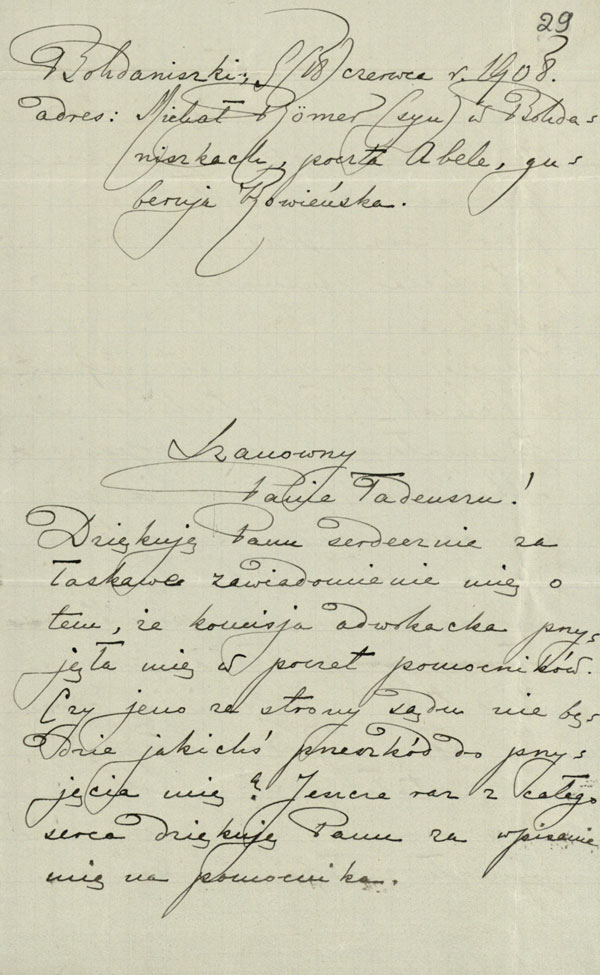 29
Bohdaniszki, 5 (18) czerwca r. 1908.
adres: Michał Römer (syn) w Bohda-
niszkach, poczta Abele, gu-
bernja Kowieńska.
Szanowny
Panie Tadeuszu!
Dziękuję Panu serdecznie za
łaskawe zawiadomienie mię o
tem, że komisja adwokacka przy-
jęła mię w poczet pomocników.
Czy jeno ze strony sądu nie bę-
dzie jakichś przeszkód do przy-
jęcia mię? Jeszcze raz z całego
serca dziękuję Panu za wpisanie
mię na pomocnika.